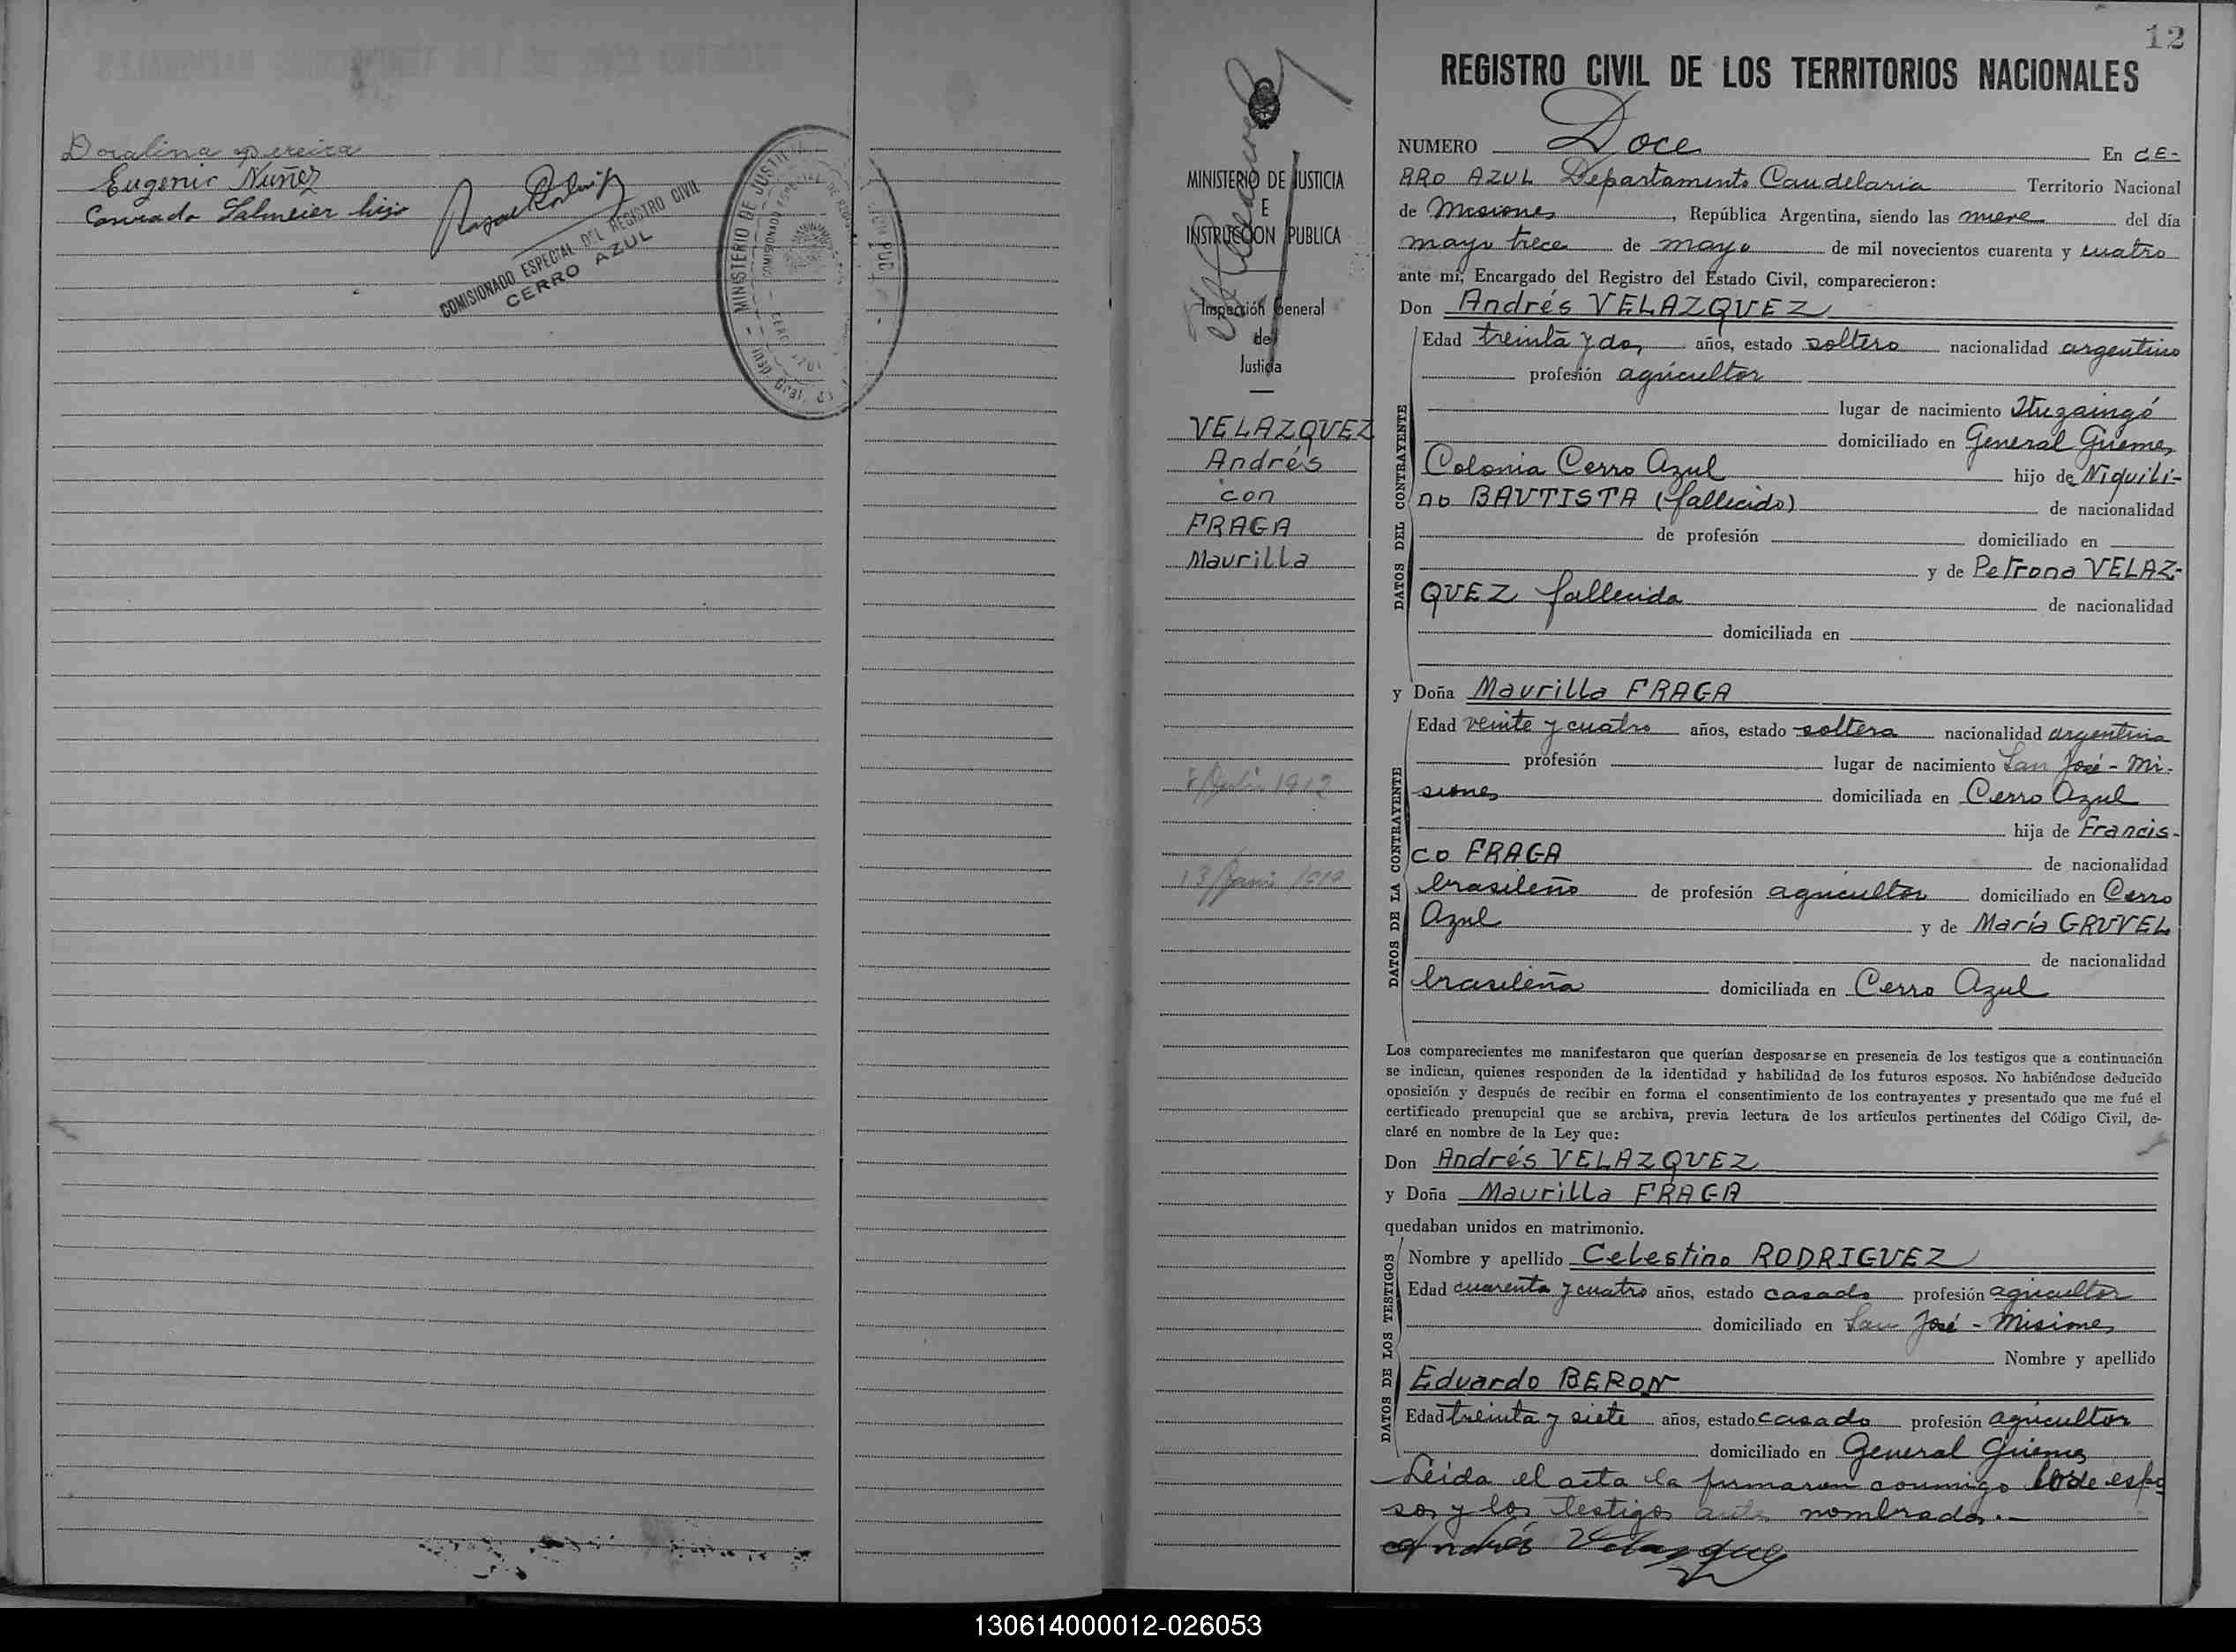 Doralina Pereira
Eugenio Nuñez
Conrado Salmeier hijo
COMISIONADO ESPECIAL DEL REGISTRO CIVIL
CERRO AZUL
MINISTERIO DE JUSTICIA
12
REGISTRO CIVIL DE LOS TERRITORIOS NACIONALES
MINISTERIO DE JUSTICIA
E
INSTRUCCION PUBLICA
Inspección General
de
Justicia
VELAZQUEZ
Andrés
con
FRAGA
Maurilla
1912
NUMERO Doce En CE-
RRO AZUL Departamento Candelaria Territorio Nacional
de Misiones, República Argentina, siendo las nueve del día
mayo trece de mayo de mil novecientos cuarenta y cuatro
ante mí, Encargado del Registro del Estado Civil, comparecieron:
Don Andrés VELAZQUEZ
DATOS DEL CONTRAYENTE
Edad treinta y dos años, estado soltero nacionalidad argentino
profesión agricultor
lugar de nacimiento Ituzaingó
domiciliado en General Güemes
Colonia Cerro Azul hijo de Niquili-
no BAUTISTA (fallecido) de nacionalidad
de profesión domiciliado en
y de Petrona VELAZ-
QUEZ fallecida de nacionalidad
domiciliada en
y Doña Maurilla FRAGA
DATOS DE LA CONTRAYENTE
Edad veinte y cuatro años, estado soltera nacionalidad argentina
profesión lugar de nacimiento San José - Mi-
siones domiciliada en Cerro Azul
hija de Francis-
co FRAGA de nacionalidad
brasileño de profesión agricultor domiciliado en Cerro
Azul y de María GRUVEL
de nacionalidad
brasileña domiciliada en Cerro Azul
Los comparecientes me manifestaron que querían desposarse en presencia de los testigos que a continuación
se indican, quienes responden de la identidad y habilidad de los futuros esposos. No habiéndose deducido
oposición y después de recibir en forma el consentimiento de los contrayentes y presentado que me fué el
certificado prenupcial que se archiva, previa lectura de los artículos pertinentes del Código Civil, de-
claré en nombre de la Ley que:
Don Andrés VELAZQUEZ
y Doña Maurilla FRAGA
quedaban unidos en matrimonio.
DATOS DE LOS TESTIGOS
Nombre y apellido Celestino RODRIGUEZ
Edad cuarenta y cuatro años, estado casado profesión agricultor
domiciliado en San José - Misiones
Nombre y apellido
Eduardo BERON
Edad treinta y siete años, estado casado profesión agricultor
domiciliado en General Güemes
Leida el acta la firmaron conmigo los espo
sos y los testigos antes nombrados.-
Andrés Velazquez
130614000012-026053